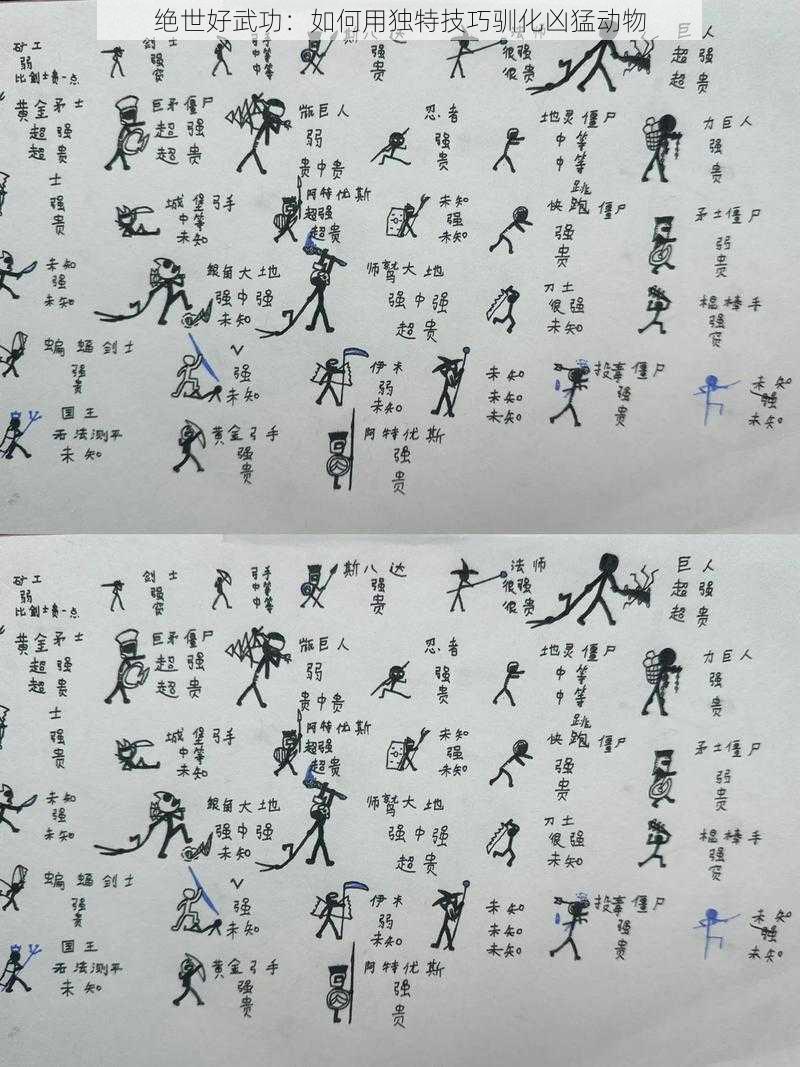 绝世好武功：如何用独特技巧驯化凶猛动物
矿工
弱
比剑士贵一点
剑士
强
弓手
中等
中等
斯八达
强
贵
法师
很强
很贵
巨人
超强
超贵
黄金矛士
超强
超贵
巨矛僵尸
超强
超贵
巨人
弱
贵中贵
忍者
强
贵
地灵僵尸
中等
中等
力巨人
强
贵
士
强
贵
城堡弓手
中等
未知
阿特优斯
超强
超贵
未知
强
未知
跳
快跑僵尸
强
贵
矛士僵尸
弱
贵
未知
强
未知
银角大地
强中强
未知
师鹫大地
强中强
超贵
刀士
很强
未知
棍棒手
强
蝙蝠剑士
强
贵
V
强
未知
伊未
弱
未知
未知
未知
未知
投毒僵尸
强
贵
未知
强
未知
国王
无法测平
未知
黄金弓手
强
贵
阿特优斯
强
贵
矿工
弱
比剑士贵一点
剑士
强
弓手
中等
中等
斯八达
强
贵
法师
很强
很贵
巨人
超强
超贵
黄金矛士
超强
超贵
巨矛僵尸
超强
超贵
巨人
弱
贵中贵
忍者
强
贵
地灵僵尸
中等
中等
力巨人
强
贵
士
强
贵
城堡弓手
中等
未知
阿特优斯
超强
超贵
未知
强
未知
跳
快跑僵尸
强
贵
矛士僵尸
弱
贵
未知
强
未知
银角大地
强中强
未知
师鹫大地
强中强
超贵
刀士
很强
未知
棍棒手
强
蝙蝠剑士
强
贵
V
强
未知
伊未
弱
未知
未知
未知
未知
投毒僵尸
强
贵
未知
强
未知
国王
无法测平
未知
黄金弓手
强
贵
阿特优斯
强
贵